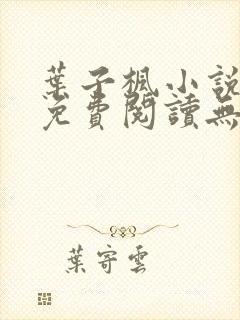 葉子楓小說
免費閱讀無
葉寄雲